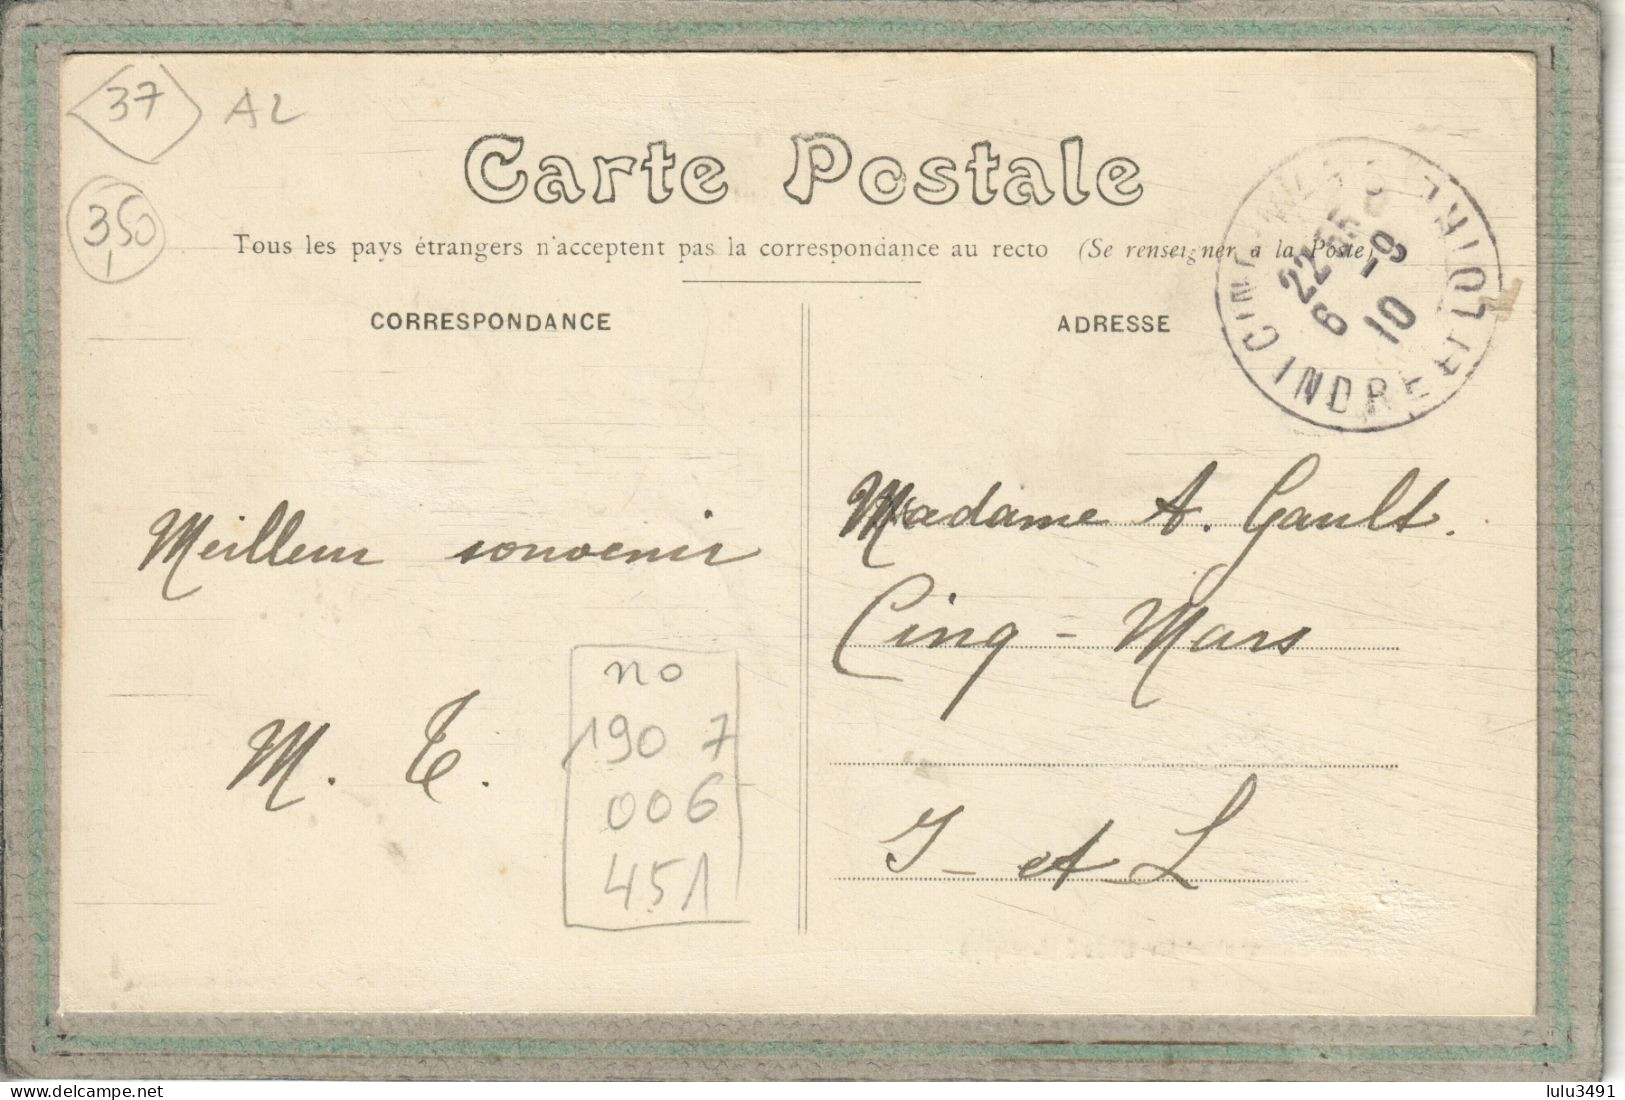 37 AL
350
Carte Postale
Tous les pays étrangers n'acceptent pas la correspondance au recto (Se renseigner à la Poste)
CORRESPONDANCE
ADRESSE
CINQ-MARS
22
6 -9
10
INDRE ET LOIRE
Meilleur souvenir
M. T.
Madame A. Gault.
Cinq-Mars
I- et L
no
190 7
006
451
delcampe.net
lulu3491